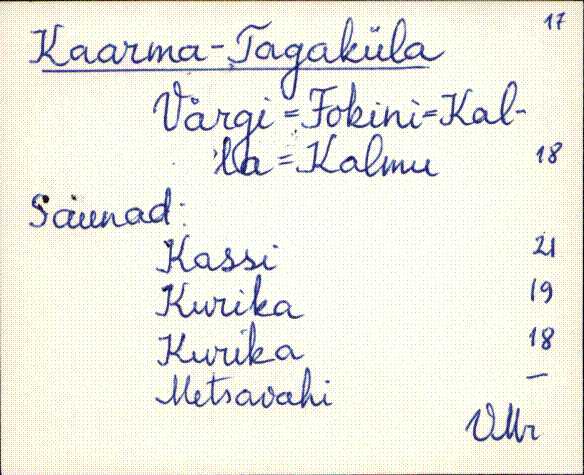 17
Kaarma-Tagaküla
Värgi = Fokini = Kal-
la = Kalmu 18
Saunad:
Kassi 21
Kurika 19
Kurika 18
Metsavahi —
VMr